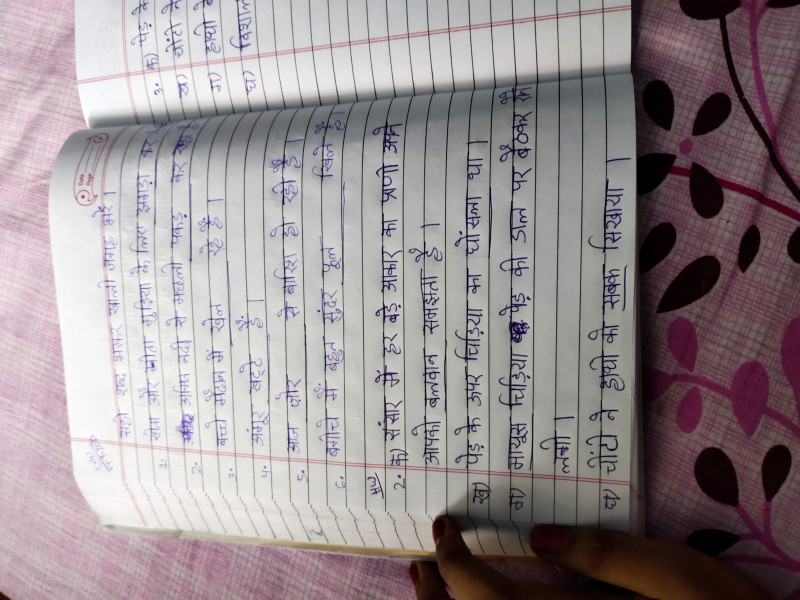 सही शब्द भरकर खाली जगह भरें।
1. सीता और गीता गुड़िया के लिए झगड़ा कर
2. अमित नदी से मछली पकड़ कर
3. बच्चे मैदान में खेल रहे हैं।
4. अंगूर खट्टे हैं।
5. आज जोर से बारिश हो रही है।
6. बगीचे में बहुत सुंदर फूल खिले हैं।
H/W
2. क) संसार में हर बड़े आकार का प्राणी अपने
आपको बलवान समझता है।
ख) पेड़ के ऊपर चिड़िया का घोंसला था।
ग) मायूस चिड़िया पेड़ की डाल पर बैठकर
लगी।
घ) चींटी ने हाथी को सबक सिखाया।
2. क) पेड़ के
ख) चींटी ने
ग) हाथी
घ) विशाल